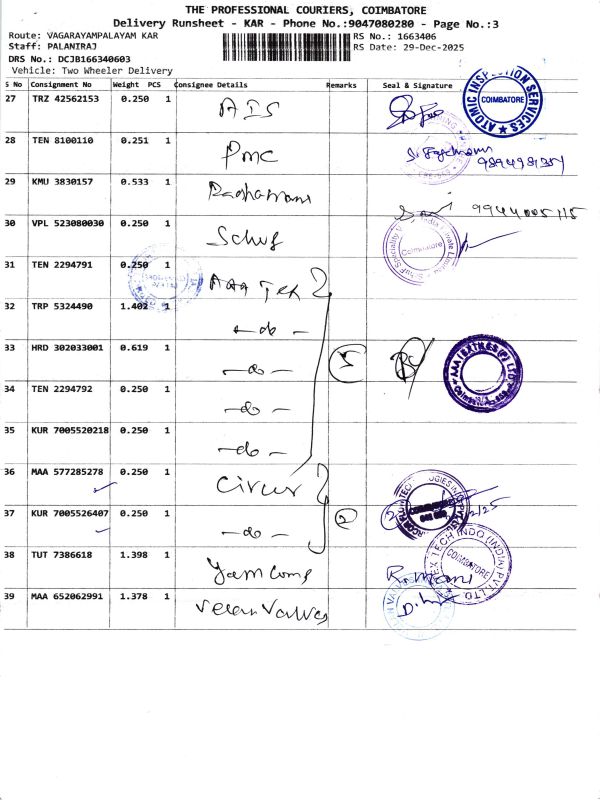 THE PROFESSIONAL COURIERS, COIMBATORE
Delivery Runsheet - KAR - Phone No.:9047080280 - Page No.:3
Route: VAGARAYAMPALAYAM KAR
RS No.: 1663406
Staff: PALANIRAJ
RS Date: 29-Dec-2025
DRS No.: DCJB166340603
Vehicle: Two Wheeler Delivery
S No Consignment No Weight PCS Consignee Details Remarks Seal & Signature
27 TRZ 42562153 0.250 1 AIS
ATOMIC INSPECTION SERVICES COIMBATORE
28 TEN 8100110 0.251 1 PMC
29 KMU 3830157 0.533 1
30 VPL 523080030 0.250 1 Schuf
Coimbatore
31 TEN 2294791 0.250 1 AAA Tex
32 TRP 5324490 1.402 1 -do-
33 HRD 302033001 0.619 1 -do- 5
34 TEN 2294792 0.250 1 -do-
35 KUR 7005520218 0.250 1 -do-
36 MAA 577285278 0.250 1 Circor
37 KUR 7005526407 0.250 1 -do- 2
38 TUT 7386618 1.398 1
TECH INDO (INDIA) PVT. LTD. COIMBATORE
39 MAA 652062991 1.378 1